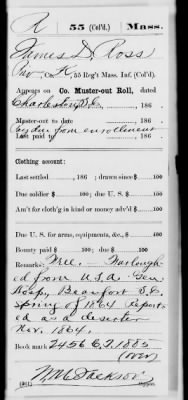 R 55 (Col'd.) Mass.
James D. Ross
Pvt., Co. K, 55 Reg't Mass. Inf. (Col'd).
Appears on Co. Muster-out Roll, dated
Charleston S.C., 186
Muster-out to date , 186
Last paid to from enrollment, 186
Clothing account:
Last settled , 186 ; drawn since $ 100
Due soldier $ 100; due U. S. $ 100
Am't for cloth'g in kind or money adv'd $ 100
Due U. S. for arms, equipments, &c., $ 100
Bounty paid $ 100; due $ 100
Remarks: Furlough
ed from U.S.A. Gen
Hosp. Beaufort S.C.
Spring of 1864 Report
ed as a deserter
Nov. 1864.
Book mark 2456 C 1885
(over)
W. M. C. Jackson
(341) Copyist.